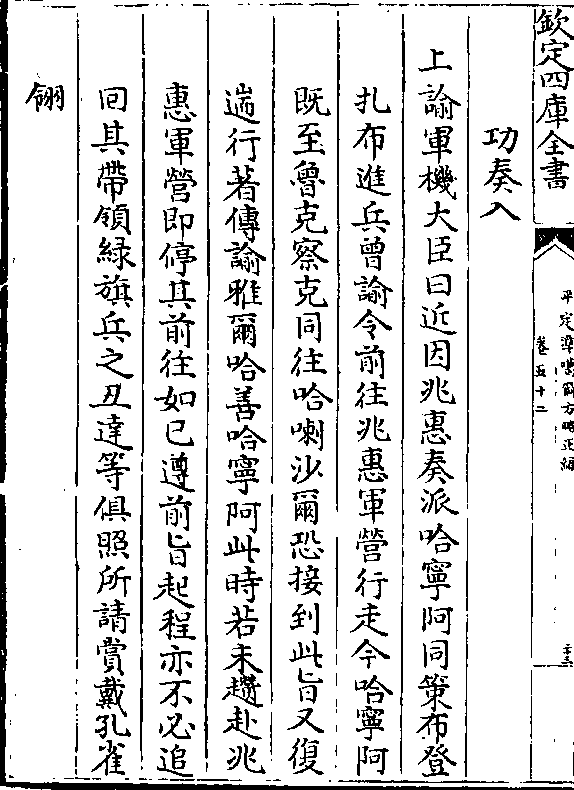 欽定四庫全書
平定準噶爾方略正編
卷五十二
二十三
功奏入
上諭軍機大臣曰近因兆惠奏派哈寧阿同策布登
扎布進兵曾諭令前往兆惠軍營行走今哈寧阿
既至魯克察克同往哈喇沙爾恐接到此旨又復
遄行著傳諭雅爾哈善哈寧阿此時若未趲赴兆
惠軍營即停其前往如已遵前旨起程亦不必追
回其帶領緑旗兵之丑達等俱照所請賞戴孔雀
翎